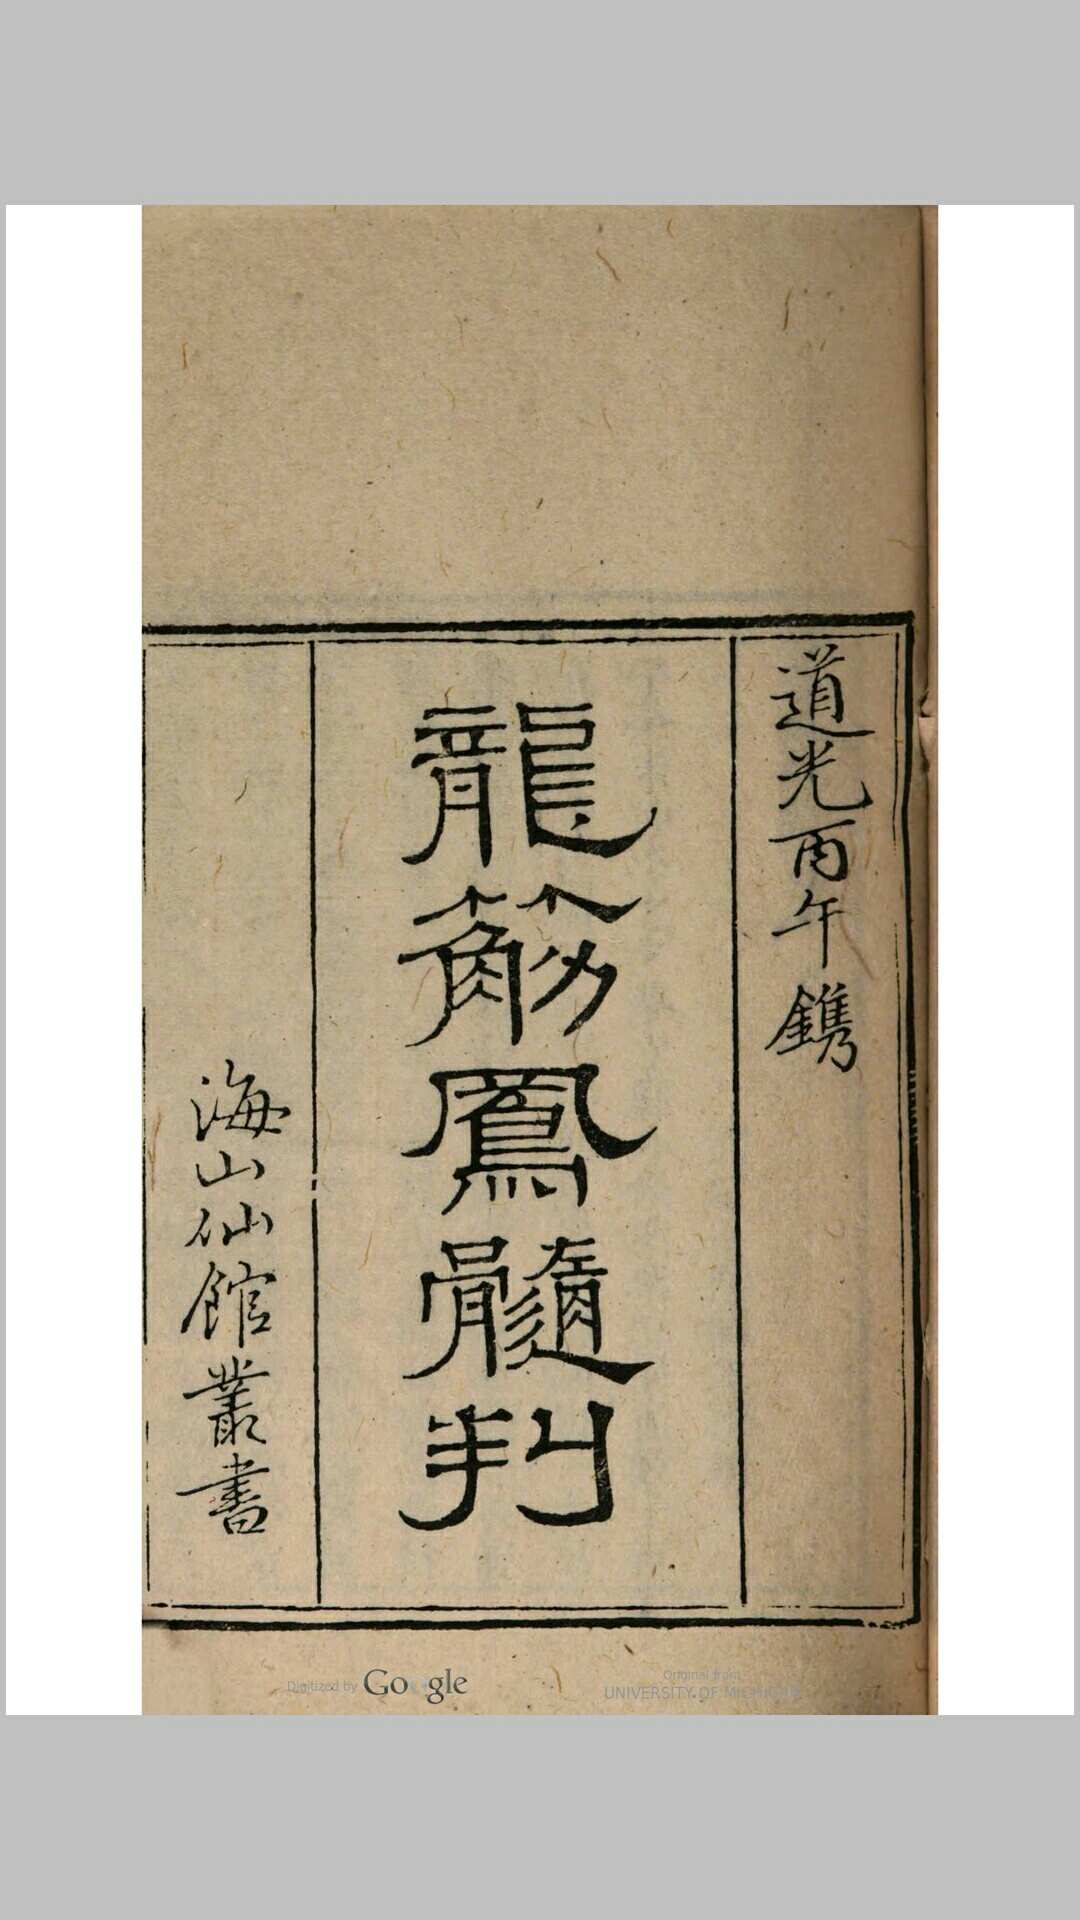 道光丙午鐫
龍筋鳳髓判
海山仙館叢書
Digitized by Google
Original from
UNIVERSITY OF MICHIGAN